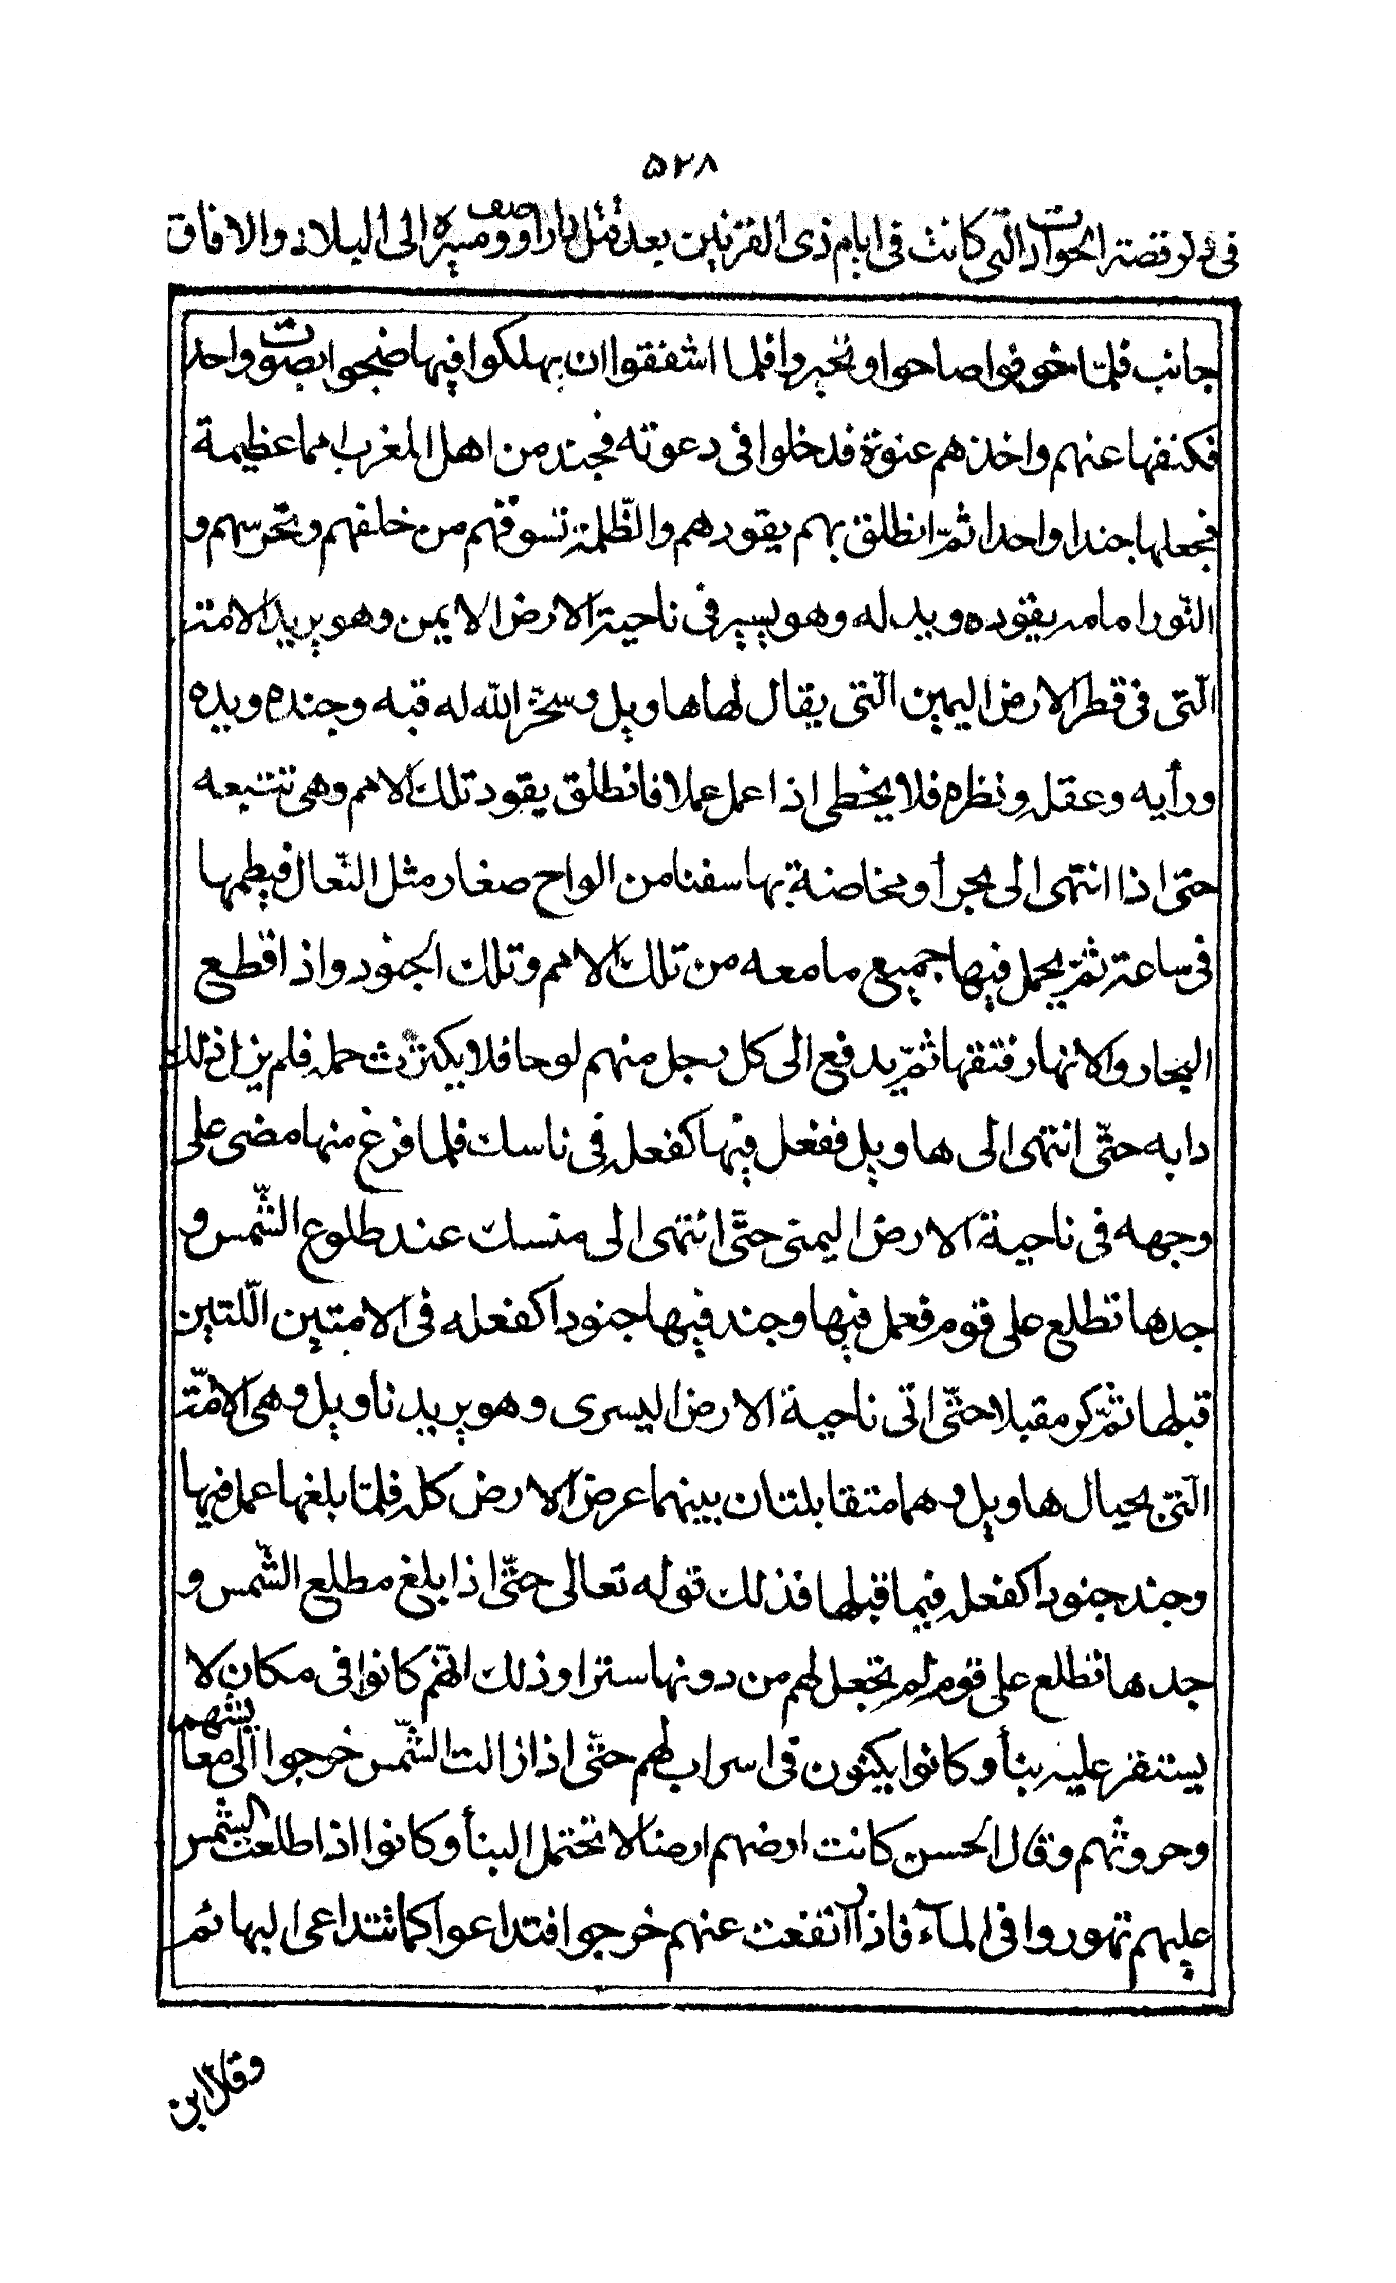 ٥٢٨
فى ذكر قصة الحوادث التى كانت فى ايام ذى القرنين بعد قتل دارا ووصف مسيره الى البلاد والافاق
جانب فلمّا خوفوا صاحوا وتحيروا فلما اشفقوا ان يهلكوا فيها ضجوا بصوت واحد
فكشفها عنهم واخذهم عنوة فدخلوا فى دعوته فجند من اهل المغرب امما عظيمة
فجعلها جندا واحدا ثمّ انطلق بهم يقودهم والظّلمة تسوقهم من خلفهم وتحرسهم و
النّور امامه يقوده ويدله وهو يسير فى ناحية الارض الايمن وهو يريد الامة
الّتى فى قطر الارض اليمين الّتى يقال لها هاويل وسخّر الله له قبه وجنده ويده
ورأيه وعقله ونظره فلا يخطى اذا عمل عملا فانطلق يقود تلك الامم وهى تتبعه
حتى اذا انتهى الى بحر أو مخاضة بها سفنا من الواح صغار مثل النّعال فيطمها
فى ساعة ثمّ يحمل فيها جميع ما معه من تلك الامم وتلك الجنود واذا قطع
البحار والانهار فتقها ثمّ يدفع الى كل رجل منهم لوحا فلا يكترث حمله فلم يزل ذلك
دابه حتّى انتهى الى هاويل ففعل فيها كفعله فى ناسك فلما فرغ منها مضى على
وجهه فى ناحية الارض اليمنى حتّى انتهى الى منسك عند طلوع الشّمس و
جدها تطلع على قوم فعمل فيها وجند فيها جنودا كفعله فى الامتين اللّتين
قبلها ثمّ كر مقبلا حتّى اتى ناحية الارض اليسرى وهو يريد تاويل وهى الامّة
الّتى بحيال هاويل وهما متقابلتان بينهما عرض الارض كله فلمّا بلغها عمل فيها
وجند جنودا كفعله فيما قبلها فذلك قوله تعالى حتّى اذا بلغ مطلع الشّمس و
جدها تطلع على قوم لم نجعل لهم من دونها سترا وذلك انّهم كانوا فى مكان لا
يستقر عليه بنأ وكانوا يكنون فى اسراب لهم حتّى اذا زالت الشّمس خرجوا الى معايشهم
وحروثهم وقال الحسن كانت ارضهم ارضا لا تحتمل البنأ وكانوا اذا طلعت الشمس
عليهم تهوروا فى المآء فاذا ارتفعت عنهم خرجوا فتداعوا كما تتداعى البهائم
وقال ابن